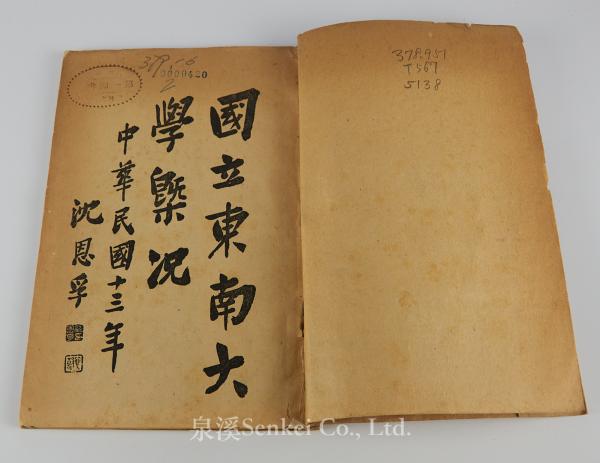 國立東南大
學槩况
中華民國十三年
沈恩孚
0000420
378.951
T567
5138
泉溪Senkei Co., Ltd.